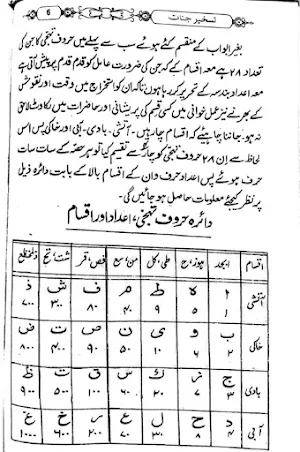 تسخیر جنات
6
بغیر ابواب کے منقسم کئے ہوئے سب سے پہلے میں حروف تہجی کا جن کی
تعداد ۲۸ ہے معہ اقسام کے کہ جن کی ضرورت عامل کو قدم قدم پر پیش آتی ہے
معہ اعداد ہندسہ کے تحریر کر رہا ہوں تاکہ ان کو استخراج میں وقت اور نقوش
کے بھرنے نیز عمل خوانی میں کسی قسم کی پریشانی اور حاضرات میں رکاوٹ لاحق
نہ ہو۔ جاننا چاہیئے کہ اقسام چار ہیں۔ آتشی۔ بادی۔ آبی اور خاکی پس اس
لحاظ سے ان ۲۸ حروف تہجی کو چار جگہ سے تقسیم کیا تو ہر حصہ کے سات سات
حرف ہوئے پس اعداد حروف وان کے اقسام بالا کے بابت دائرہ ذیل
پر نظر کیجئے معلومات حاصل ہو جائیں گی۔
دائرہ حروف تہجی، اعداد اور اقسام
اقسام ابجد ہوزح طی، کل من، سع فص، قر شت، ثخ ذ، ضظغ
آتشی ا ہ ط م ف ش ذ
۱ ۵ ۹ ۴۰ ۸۰ ۳۰۰ ۷۰۰
خاکی ب و ی ن ص ت ض
۲ ۶ ۱۰ ۵۰ ۹۰ ۴۰۰ ۸۰۰
بادی ج ز ک س ق ث ظ
۳ ۷ ۲۰ ۶۰ ۱۰۰ ۵۰۰ ۹۰۰
آبی د ح ل ع ر خ غ
۴ ۸ ۳۰ ۷۰ ۲۰۰ ۶۰۰ ۱۰۰۰